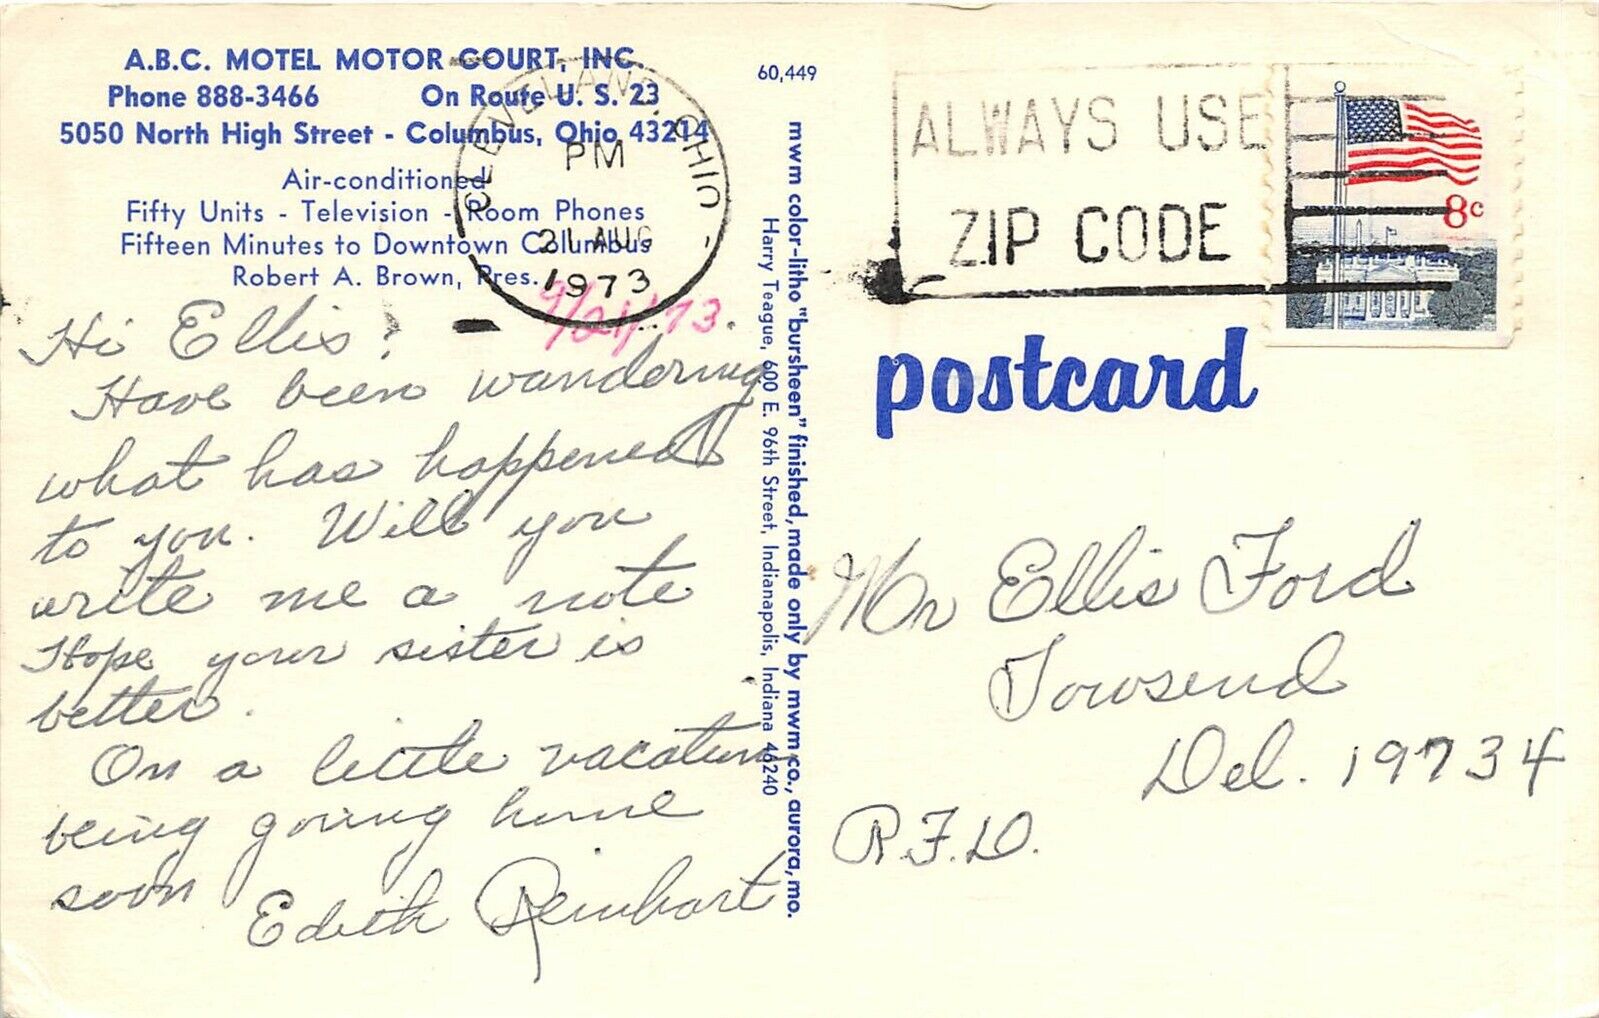 A.B.C. MOTEL MOTOR COURT, INC.
Phone 888-3466 On Route U. S. 23
5050 North High Street - Columbus, Ohio 43214
Air-conditioned
Fifty Units - Television - Room Phones
Fifteen Minutes to Downtown Columbus
Robert A. Brown, Pres.
CLEVELAND, OHIO
PM
21 AUG
1973
9/21/73.
Hi Ellis?
Have been wandering
what has happened
to you. Will you
write me a note
Hope your sister is
better.
On a little vacation
being going home
soon
Edith Reinhart
60,449
mwm color-litho "bursheen" finished, made only by mwm co., aurora, mo.
Harry Teague, 600 E. 96th Street, Indianapolis, Indiana 46240
ALWAYS USE
ZIP CODE
8c
postcard
Mr Ellis Ford
Towsend
Del. 19734
R.F.D.